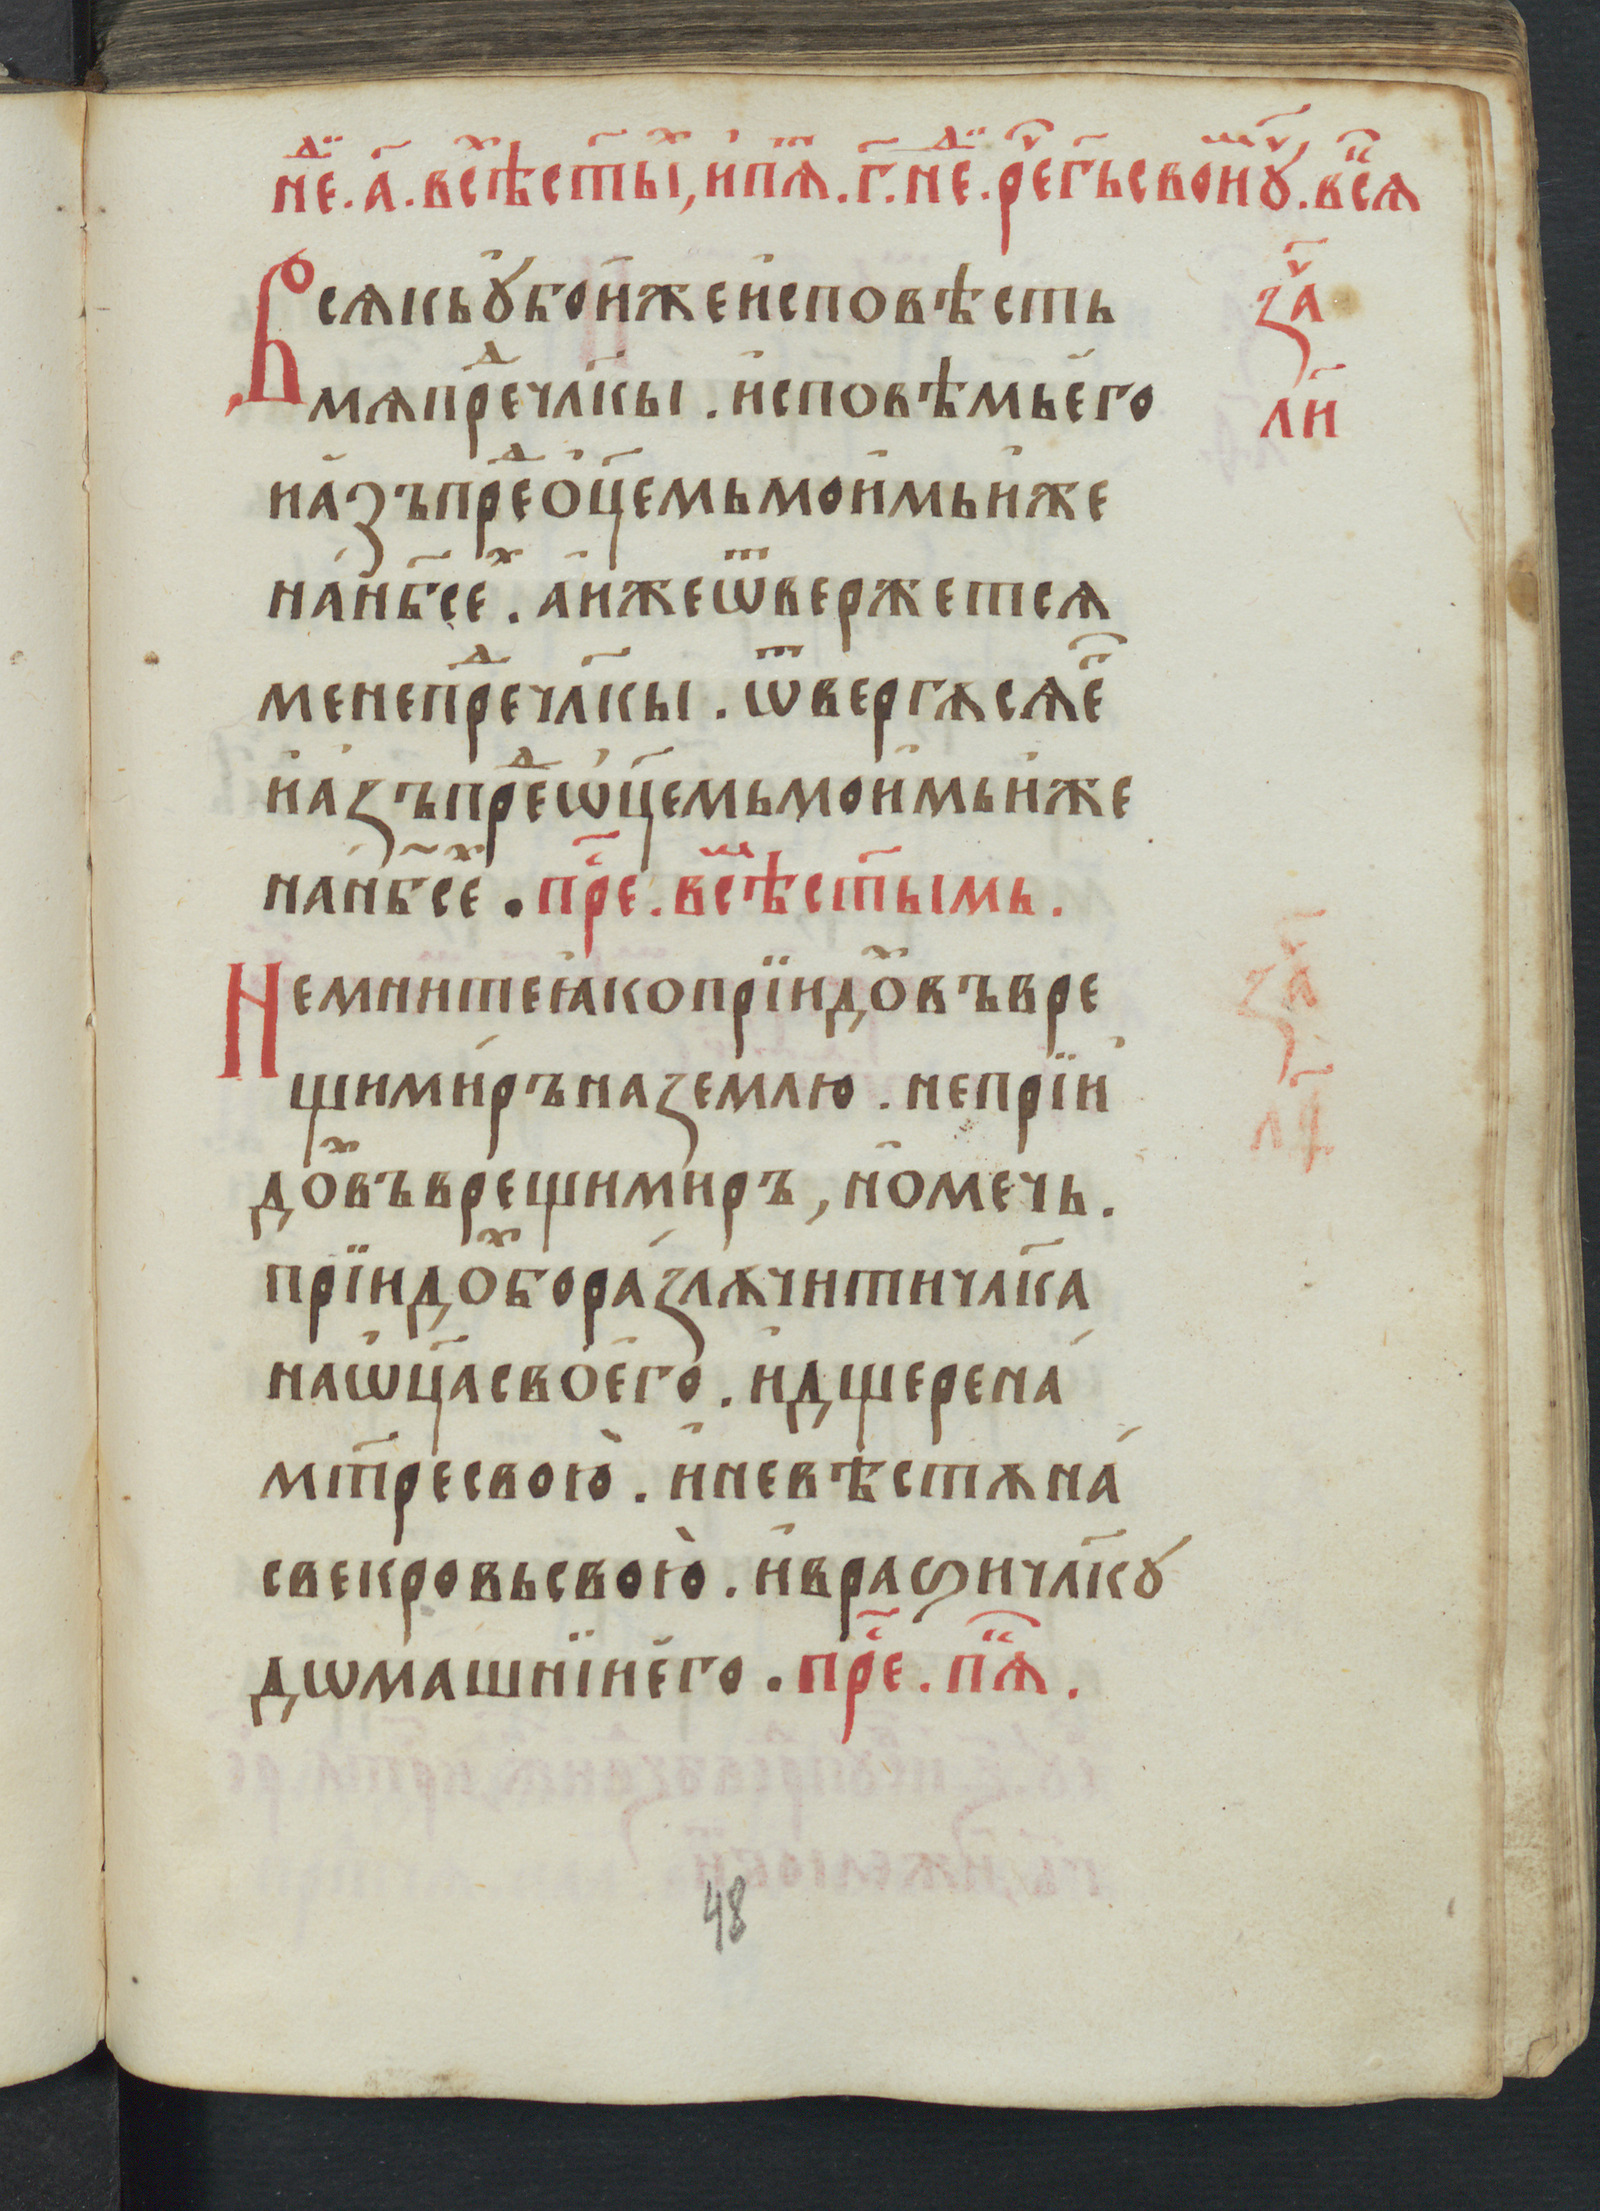 неⷣ҇. а҃. всѣⷯ҇ ст҃ыⷯ, и҆ пⷮѧ҇. г҃. неⷣ҇. реⷱ҇ г҃ь своиⷨ҇ оу҆ⷱ҇. всⷭ҇ѧ
Всѧкь оу҆бо и҆же и҆сповѣсть
заⷱ҇
мѧ преⷣ҇ чл҃кы . и҆сповѣмь є҆го
л҃и
и҆ а҆зъ преⷣ҇ о҆ц҃емь моимь иже
на н҃бсеⷯ . а и҆же ѿвержетсѧ
мене преⷣ҇ чл҃кы . ѿвергѫсѧ єⷢ҇
и҆ а҆зъ преⷣ҇ ѡ҆ц҃емь моимь иже
на н҃бсеⷯ . преⷭ҇. всѣⷨ҇ ст҃ымь .
Не мните ꙗко прїидоⷯ въвре
заⷱ҇
щи миръ на землю . не прїи
л҃ѳ
доⷯ въврещи миръ , но мечь .
прїидоⷯ бо разлѫчити чл҃ка
на ѡ҆ц҃а своего . и дщере на
мт҃ре свою̀ . и невѣстѫ на
свекровь свою̀ . и враѕи чл҃коу
дѡмашнїи его . преⷭ҇ . пⷭ҇ѧ .
48